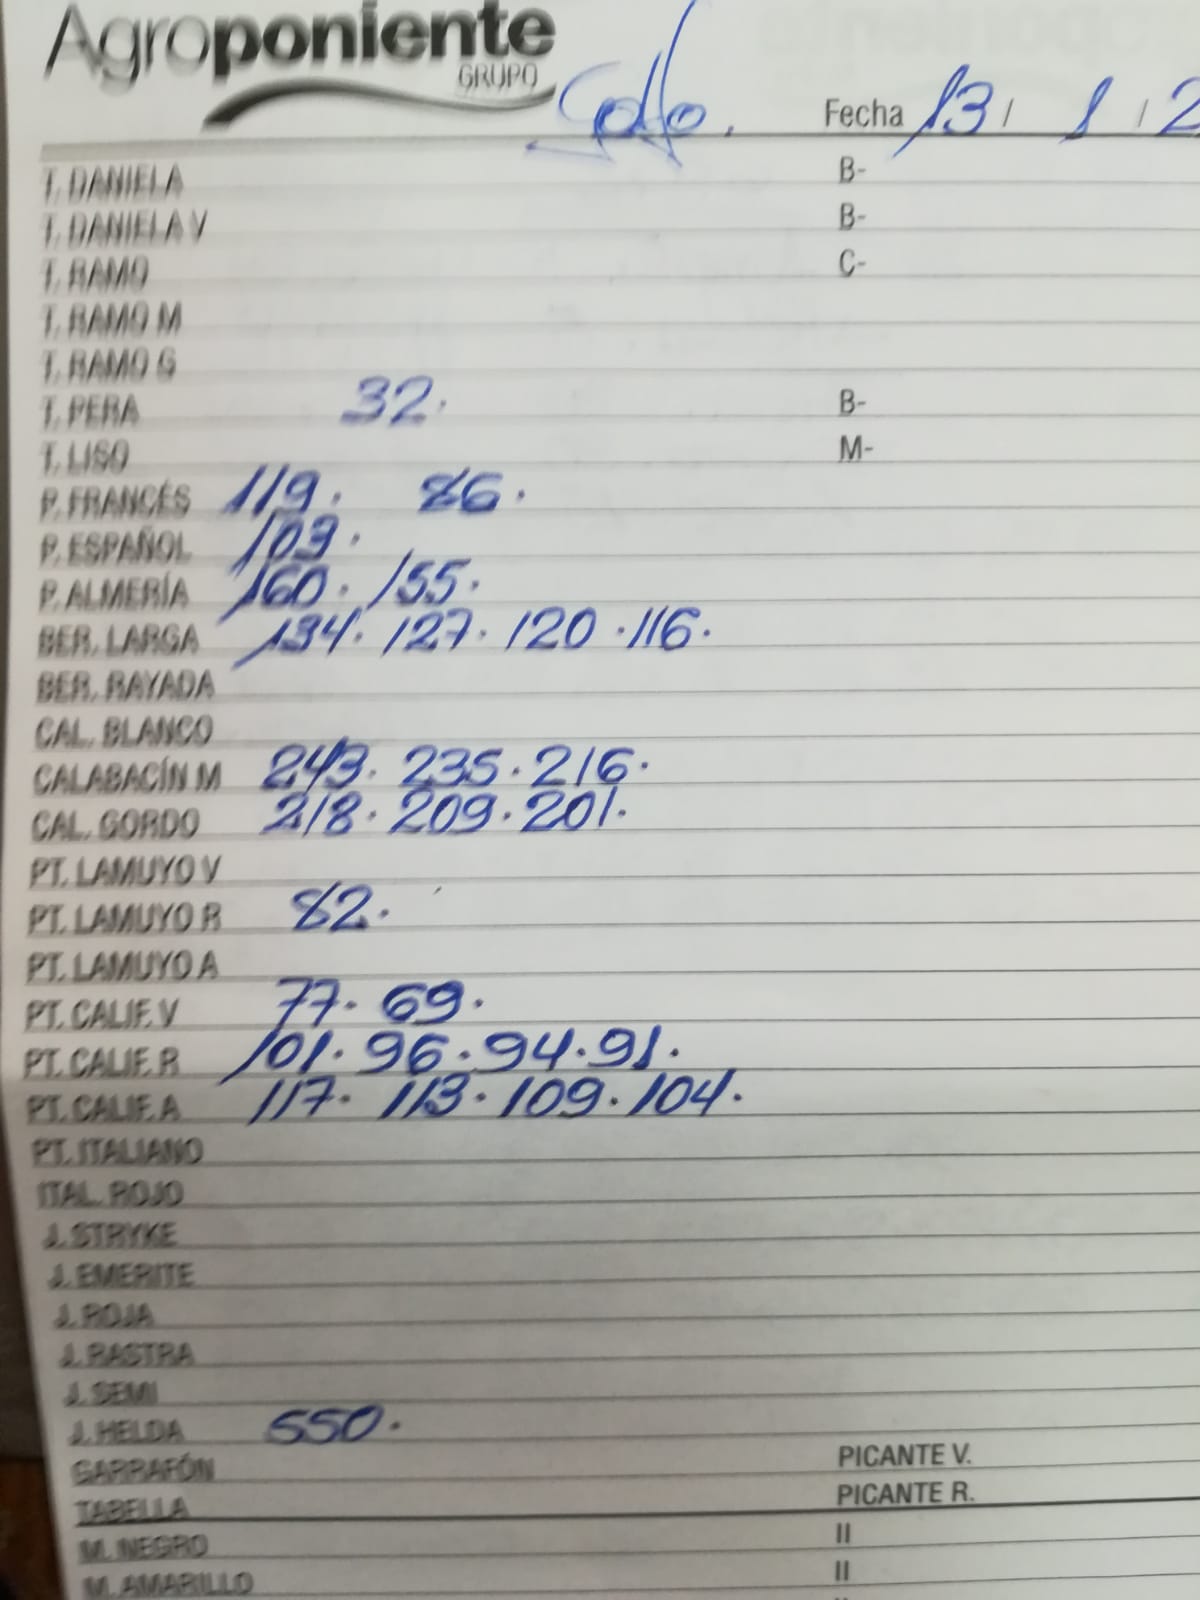 Agroponiente
GRUPO
Fecha 13/ 1 / 2
T. DANIELA B-
T. DANIELA V B-
T. RAMO C-
T. RAMO M
T. RAMO G
T. PERA 32. B-
T. LISO M-
P. FRANCÉS 119. 86.
P. ESPAÑOL 103.
P. ALMERÍA 160. 155.
BER. LARGA 134. 127. 120. 116.
BER. RAYADA
CAL. BLANCO
CALABACÍN M 243. 235. 216.
CAL. GORDO 218. 209. 201.
PT. LAMUYO V
PT. LAMUYO R 82.
PT. LAMUYO A
PT. CALIF. V 77. 69.
PT. CALIF. R 101. 96. 94. 91.
PT. CALIF. A 117. 113. 109. 104.
PT. ITALIANO
ITAL. ROJO
J. STRYKE
J. EMERITE
J. ROJA
J. RASTRA
J. SEMI
J. HELDA 550.
GARRAFÓN PICANTE V.
TABELLA PICANTE R.
M. NEGRO II
M. AMARILLO II